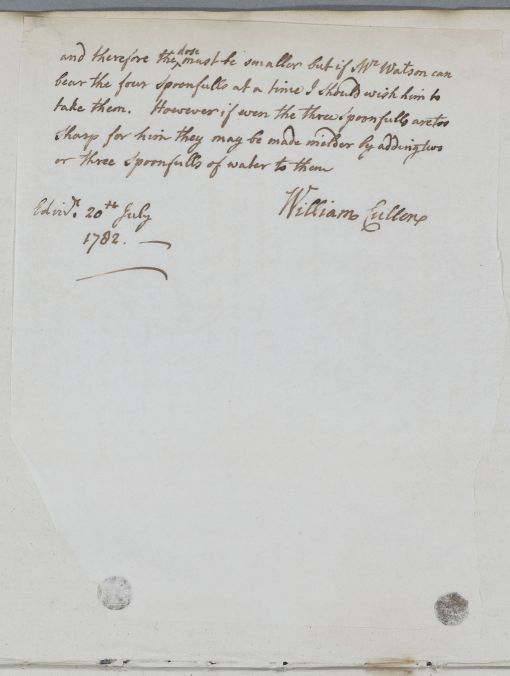 and therefore the dose must be smaller but if Mr. Watson can
bear the four Spoonfulls at a time I should wish him to
take them. However if even the three Spoonfulls are too
sharp for him they may be made milder by adding two
or three Spoonfulls of water to them
William Cullen
Edinr. 20th July
1782.